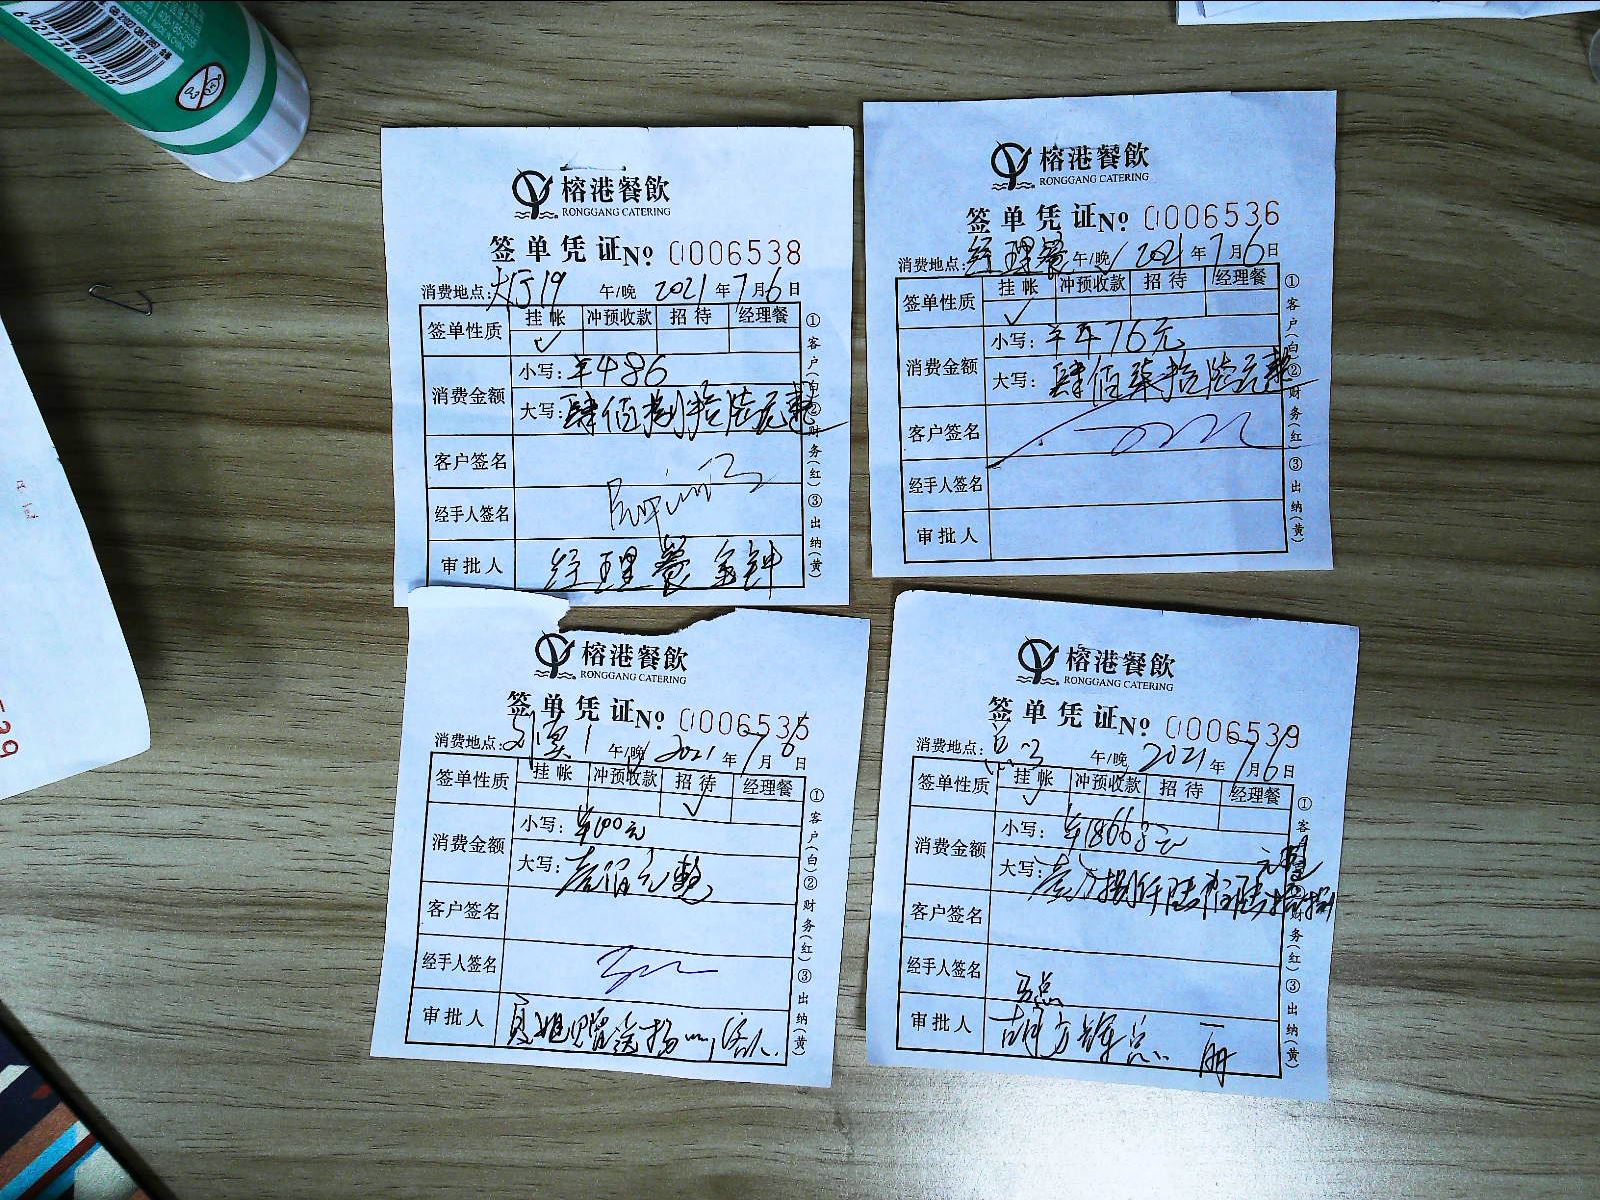 6921734971036
榕港餐飲
RONGGANG CATERING
签单凭证 No 0006538
消费地点: 大厅19 午/晚 2021年7月6日
签单性质 挂帐 冲预收款 招待 经理餐
✓
消费金额
小写: ¥486
大写: 肆佰捌拾陆元整
客户签名
经手人签名
审批人 经理餐
①客户(白)②财务(红)③出纳(黄)
榕港餐飲
RONGGANG CATERING
签单凭证 No 0006536
消费地点: 经理餐 午/晚 ✓ 2021年7月6日
签单性质 挂帐 冲预收款 招待 经理餐
✓
消费金额
小写: 76元
大写: 肆佰柒拾陆元整
客户签名
经手人签名
审批人
①客户(白)②财务(红)③出纳(黄)
榕港餐飲
RONGGANG CATERING
签单凭证 No 0006535
消费地点: 午/晚 ✓ 2021年7月6日
签单性质 挂帐 冲预收款 招待 经理餐
✓
消费金额
小写: ¥100元
大写: 壹佰元整
客户签名
经手人签名
审批人
①客户(白)②财务(红)③出纳(黄)
榕港餐飲
RONGGANG CATERING
签单凭证 No 0006539
消费地点: 午/晚 2021年7月6日
签单性质 挂帐 冲预收款 招待 经理餐
✓
消费金额
小写: ¥18668元
大写: 壹万捌仟陆佰陆拾捌元整
客户签名
经手人签名
审批人
①客户(白)②财务(红)③出纳(黄)